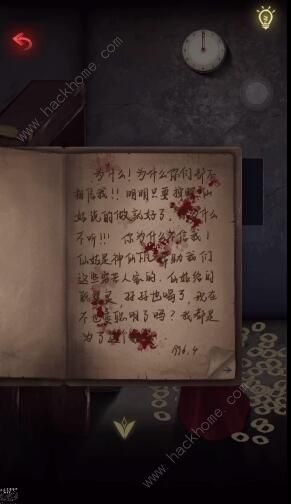 为什么！为什么你们都不
相信我！！明明只要按照仙
姑说的做就好了，为什么
不听！！！你为什么不信我！
仙姑是神仙下凡帮助我们
这些穷苦人家的，仙姑给的
孩也喝了，现在
不也变聪明了吗？我都是
为了
1996.4
www.hackhome.com
www.hackhome.com
www.hackhome.com